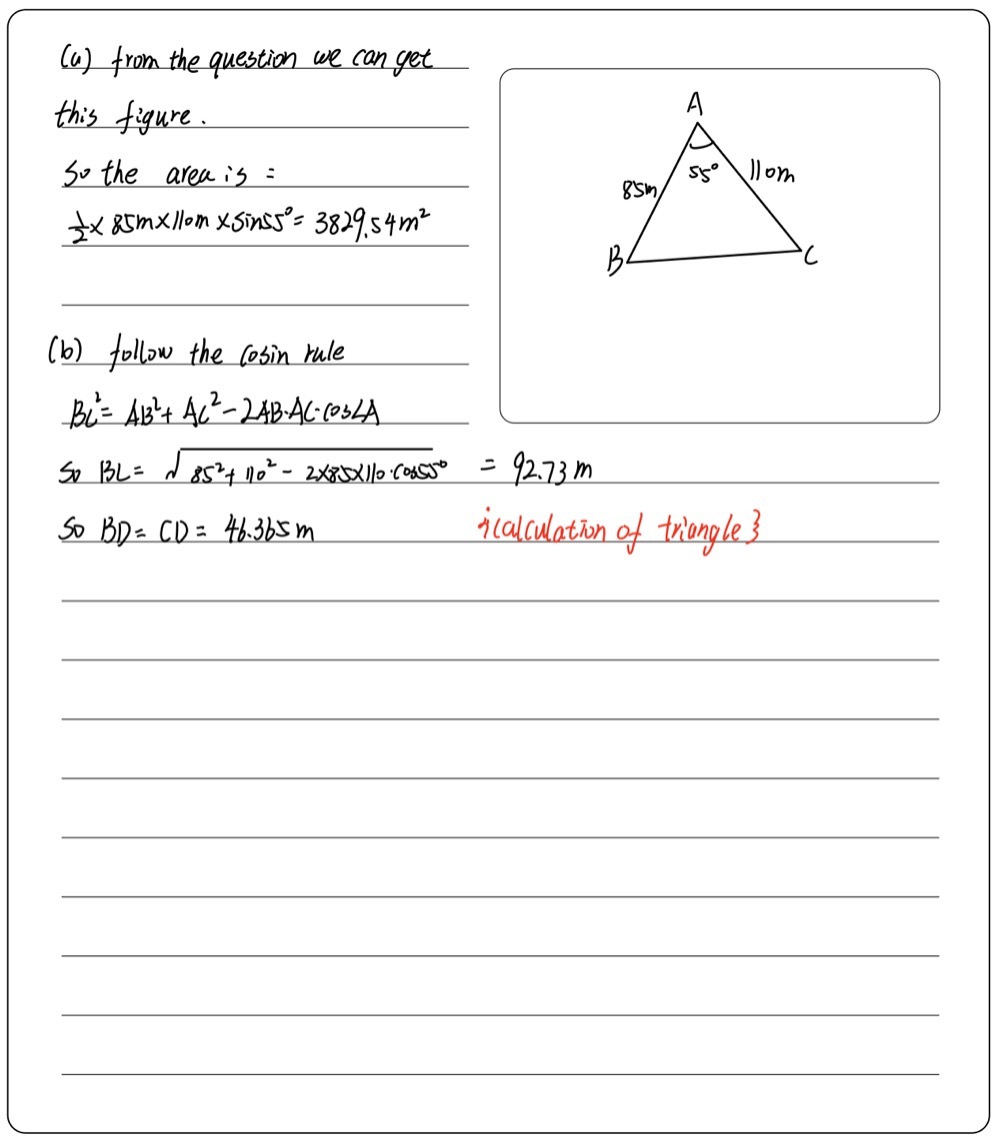 (a) from the question we can get
this figure.
So the area is:
½× 85m×110m×sin55°= 3829.54m²
A
55°
85m
110m
B
C
(b) follow the cosin rule
BC²= AB²+ AC²-2AB·AC·cos∠A
So BC= √85²+110²- 2×85×110·cos55° = 92.73m
So BD= CD= 46.365m
{calculation of triangle}